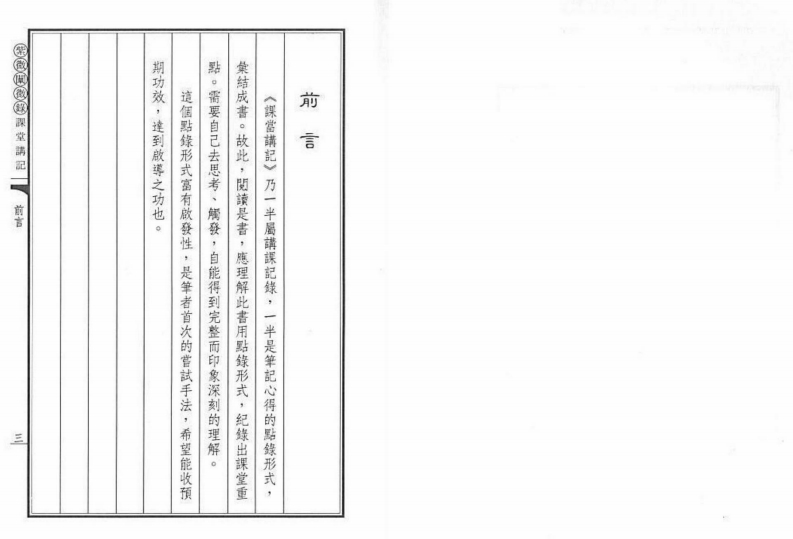 前言
《課當講記》乃一半屬講課記錄，一半是筆記心得的點錄形式，
彙結成書。故此，閱讀是書，應理解此書用點錄形式，紀錄出課堂重
點。需要自己去思考、觸發，自能得到完整而印象深刻的理解。
這個點錄形式富有啟發性，是筆者首次的嘗試手法，希望能收預
期功效，達到啟導之功也。
紫微闡微錄課堂講記
前言
三